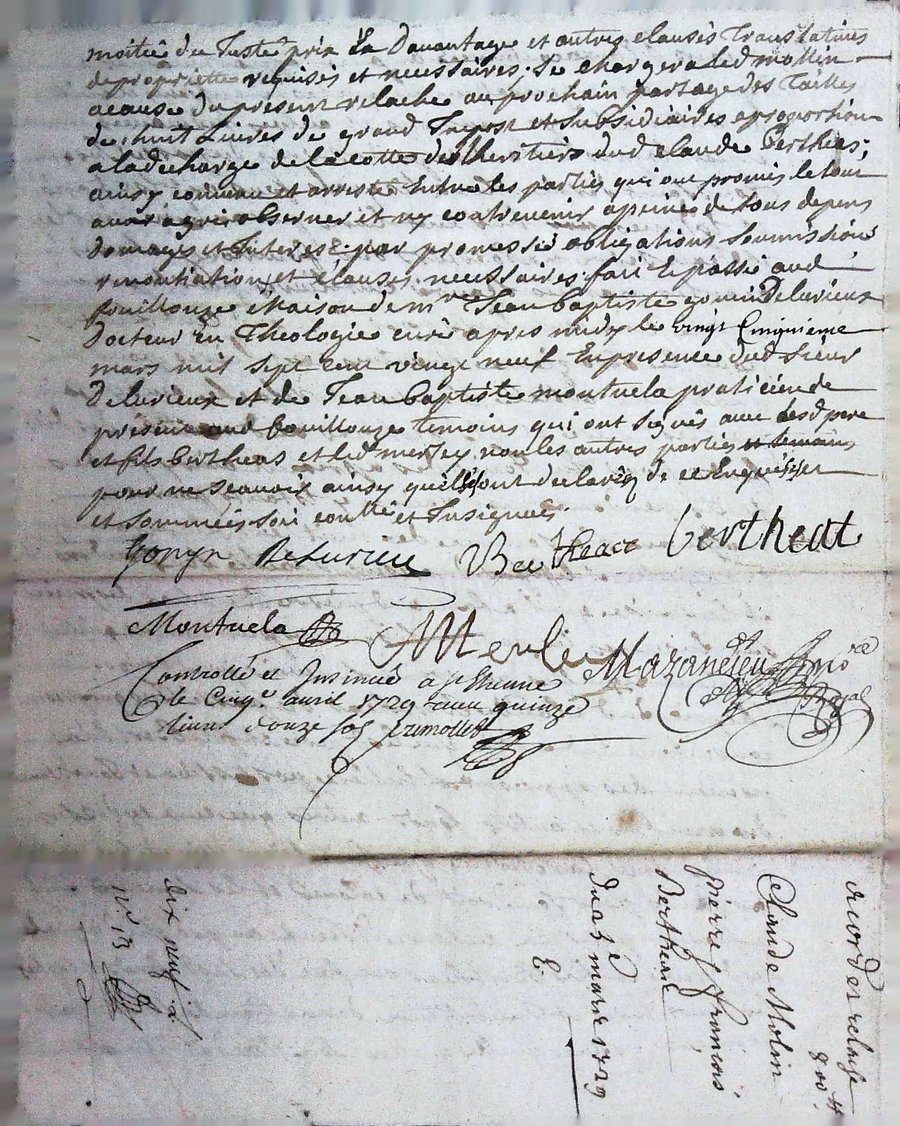 moitié du Juste prix Et a Davantage et autres clauses Translatives
de propriette requises et necessaires. Se chargera led mollin
acause du present relache au prochain partage des Tailles
de huit Livres de grand Impost et subsidiaires aproportion
a la decharge de la cotte des heritiers dud claude Bertheas;
ainsy convenu et arresté Entre les parties qui ont promis le tout
avoir agré observer et ny contrevenir apeine de tous depens
domages et Interest. par promesse obligations soumissions
renontiation et clauses necessaires. fait Et passé aud
fouillouze Maison de mre Jean baptiste gonin Delurieux
Docteur en Theologie curé apres midy le vingt Cinquieme
mars mil sept cent vingt neuf En presence Dud Sieur
Delurieux et de Jean baptiste montuela praticien de
present aud fouillouze temoins qui ont signés avec lesd pere
et fils bertheas et led merley non les autres parties et temoins
pour ne scavoir ainsy quelles ont declaré de ce Enquises et
et sommées soit conllé et Insignuée
Gonyn De Lurieu Bertheact bertheat
Montuela Merley Mazancieu nore
Royal
Controllé et Insinué a st Etienne
le Cinqe avril 1729 receu quinze
livres douze sols
accord et relaché
800 ll
Claude Molin
pierre françois
Bertheas
Du 25 e mars 1729
E
dix neuf
No 13